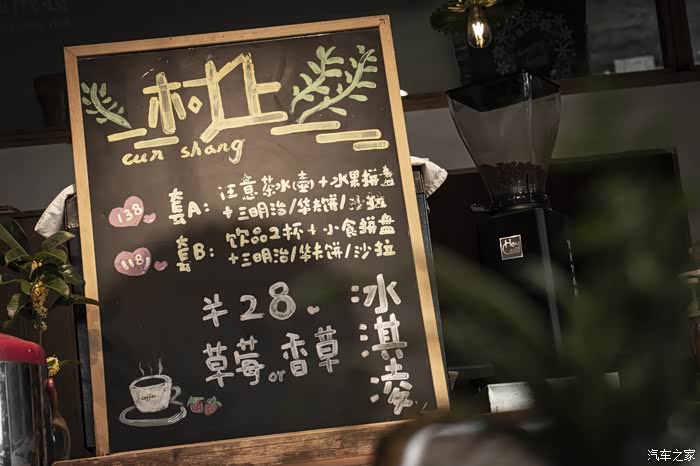 村上
cun shang
138
套A: 任意茶水(壶)+水果拼盘
+三明治/华夫饼/沙拉
118
套B: 饮品2杯+小食拼盘
+三明治/华夫饼/沙拉
¥28
草莓or香草
冰淇凌
coffee
Hey
Cafe
汽车之家